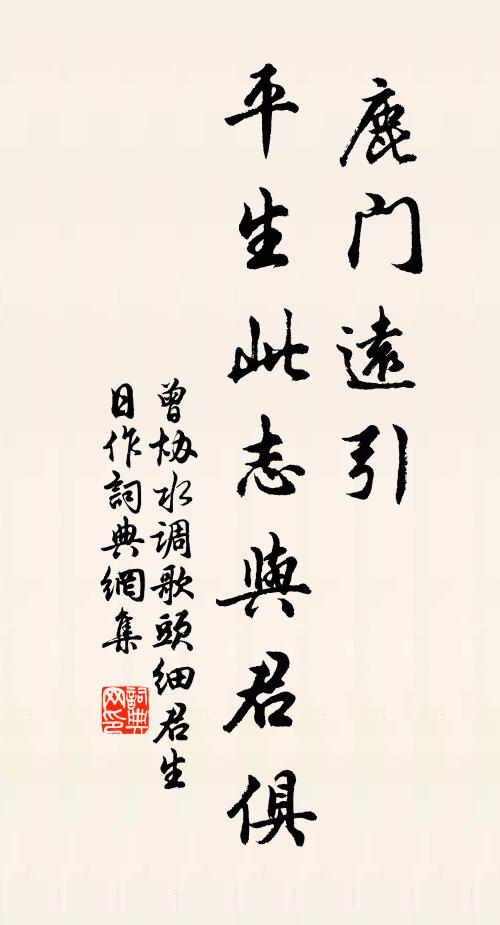 鹿门遠引
平生此志與君俱
曾协水调歌頭细君生
日作詞典網集
詞典
网印